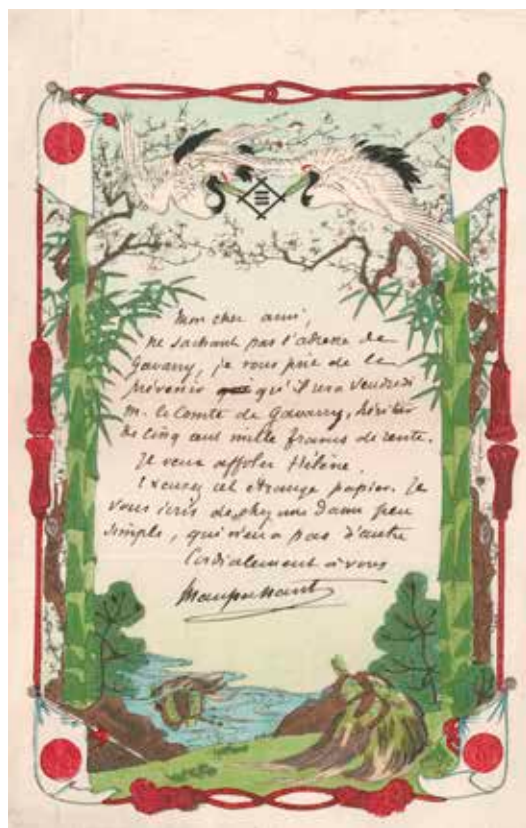 Mon cher ami,
ne sachant pas l'adresse de
Gavarry, je vous prie de le
prévenir qu'il sera vendredi
M. le Comte de Gavarry, héritier
de cinq cent mille francs de rente.
Je veux affoler Hélène.
Excusez cet étrange papier. Je
vous écris de chez une Dame peu
simple, qui n'en a pas d'autre
Cordialement à vous
Maupassant